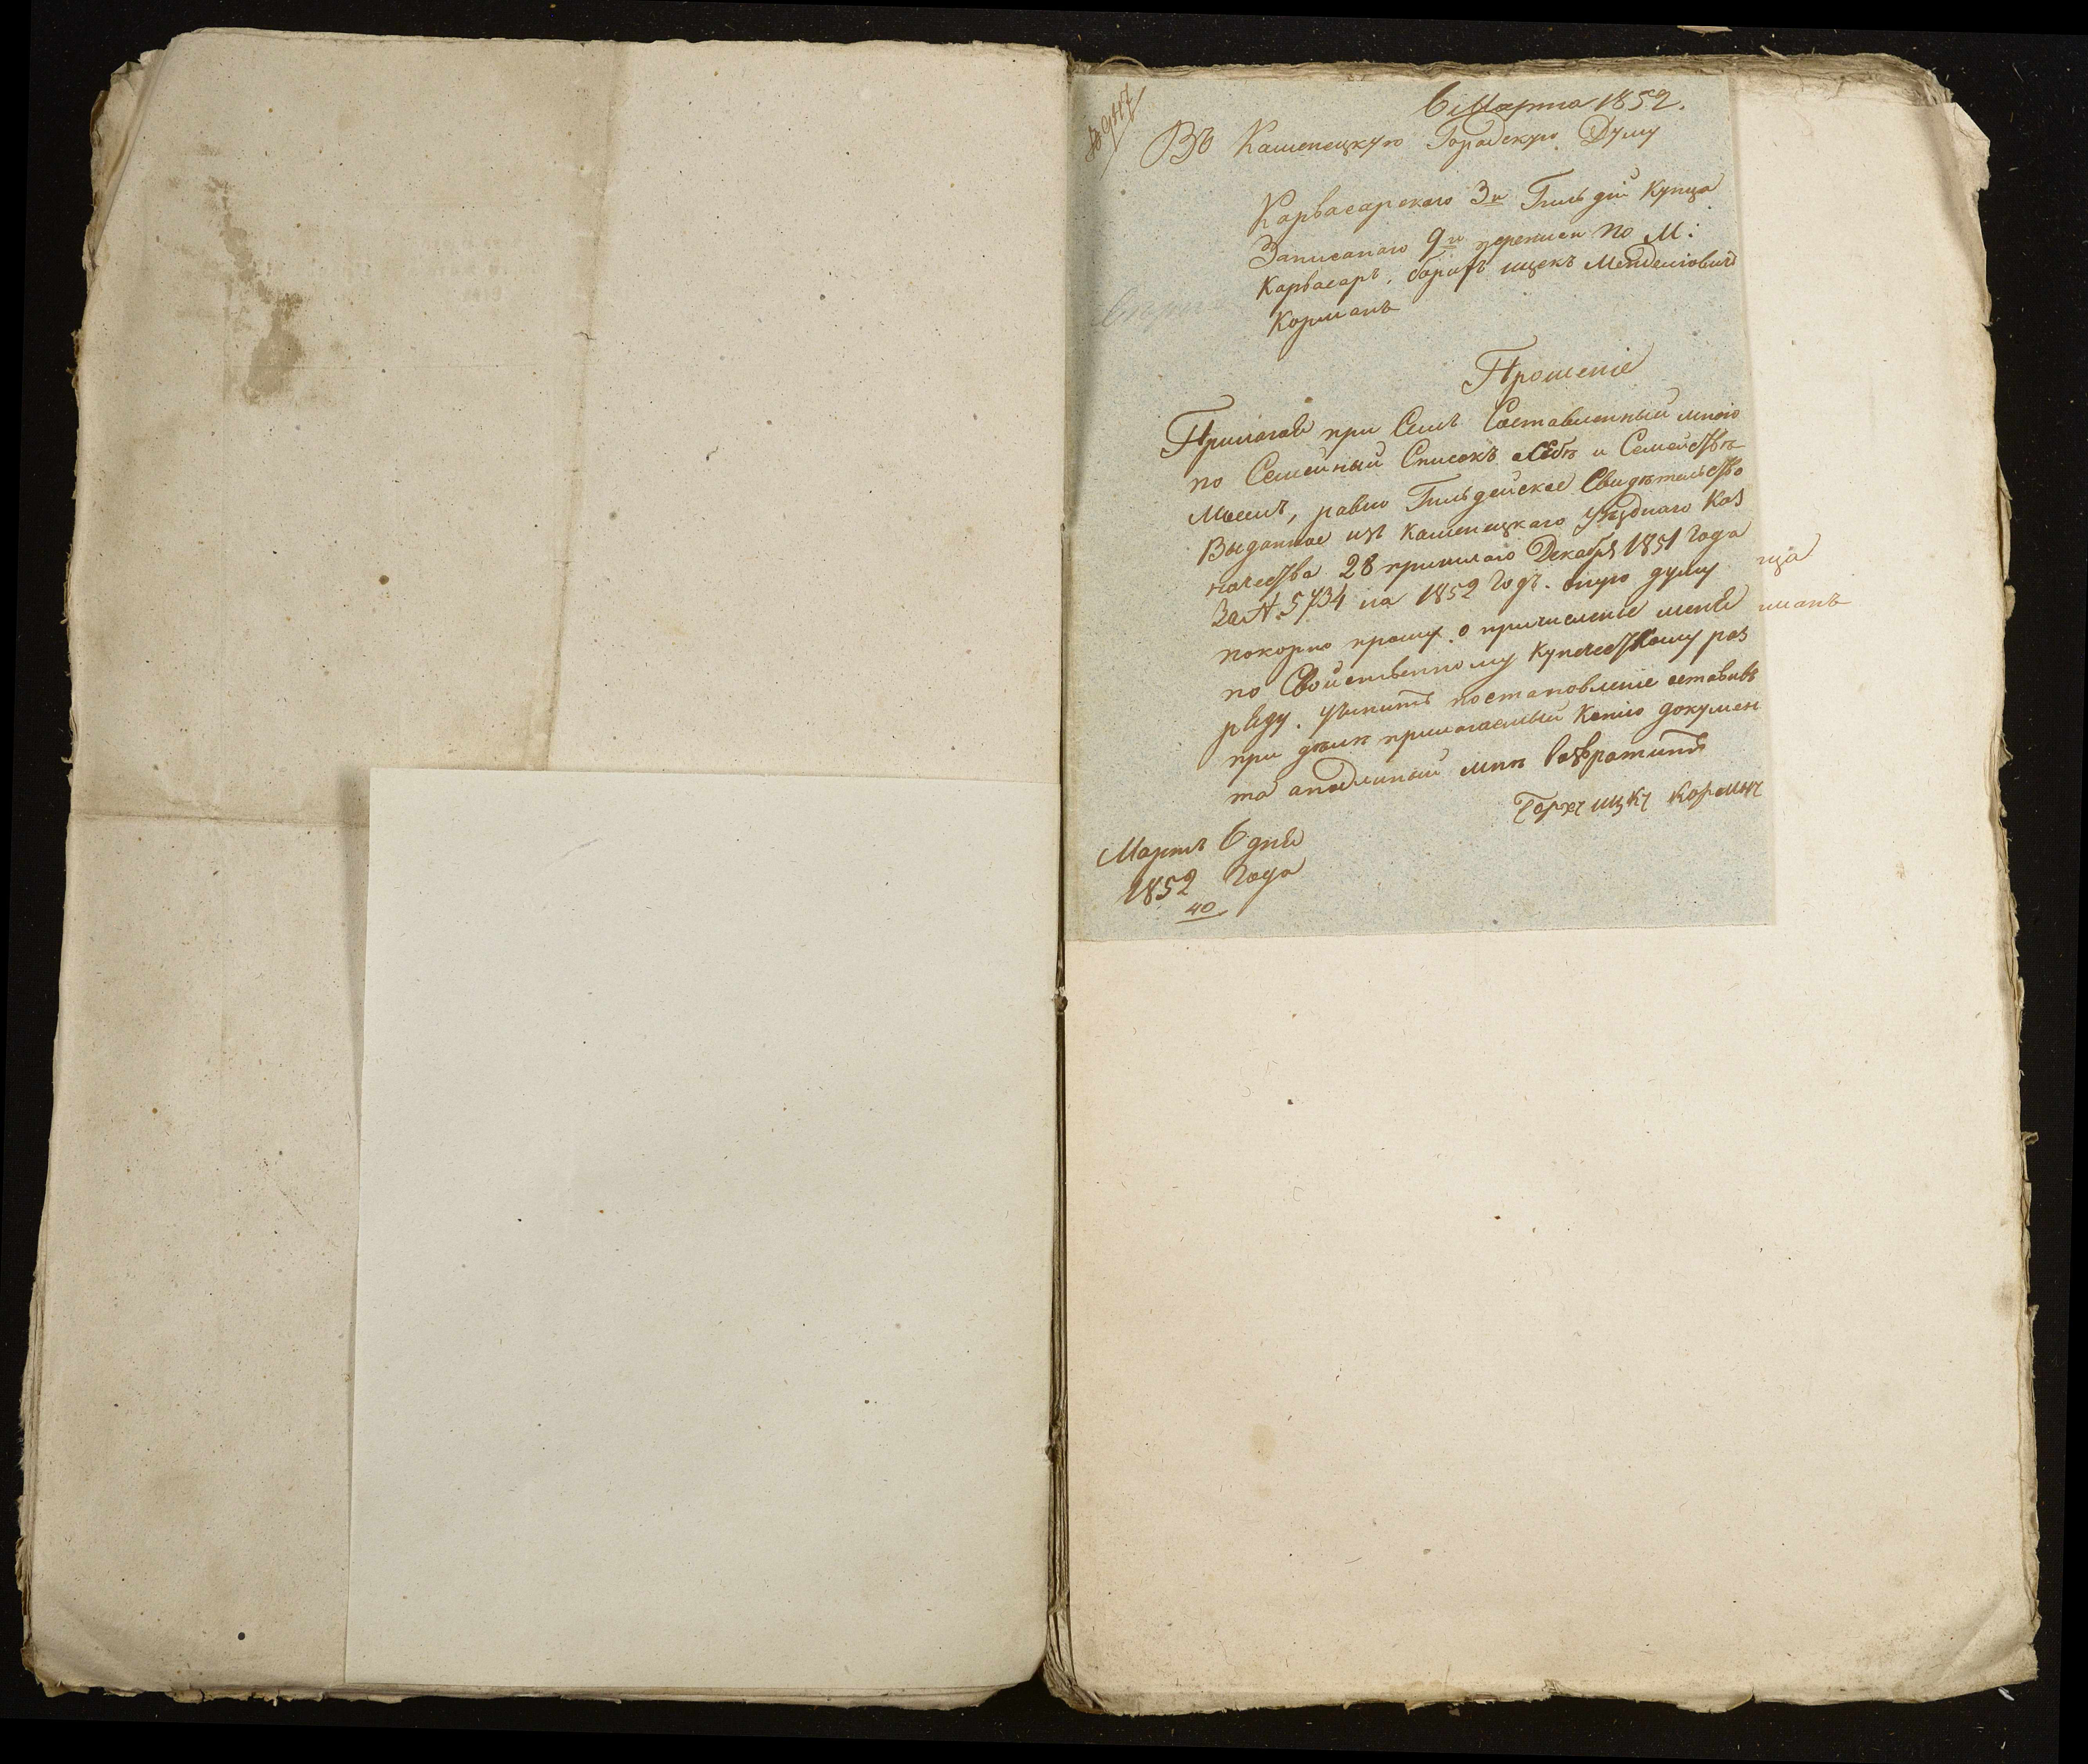 6 Марта 1852.
Въ Каменецкую Городскую Думу
Карвасарскаго 3й Гильдіи Купца
Записанаго 9й переписи по М:
Карвасаръ, Борухъ ицекъ Менделіовичъ
Корманъ
Прошеніе
Прилагая при Семъ Составленный мною
по Семейный Списокъ о Себѣ и Семействѣ
Моемъ, равно Гильдейское Свидѣтельство
Выданное изъ Каменецкаго Уѣзднаго Каз
начества 28 прошлаго Декабря 1851 Года
За №. 5734 на 1852 Годъ. оную думу
покорно прошу о причисленіе меня
по Свойственному Купечествому раз
ряду. Учинить постановленіе оставивъ
при дѣлѣ прилагаемый Копію докумен
та аподлиный мнѣ возвратить
Борхъ ицкъ Корманъ
Мартъ 6 дня
1852 Года
40
ца
манъ